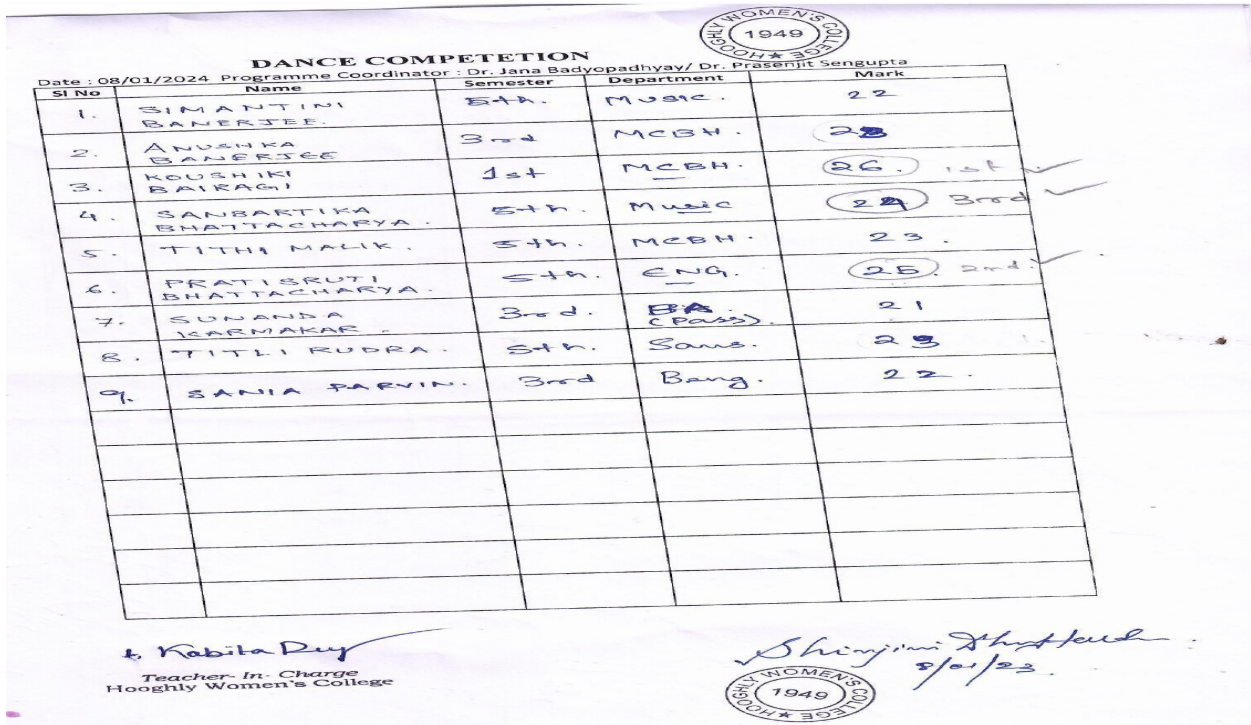 HOOGHLY WOMEN'S COLLEGE
1949
DANCE COMPETETION
Date : 08/01/2024 Programme Coordinator : Dr. Jana Badyopadhyay/ Dr. Prasenjit Sengupta
Sl No Name Semester Department Mark
1. SIMANTINI BANERJEE. 5th. MUSIC. 22
2. ANUSHKA BANERJEE 3rd MCBH.
3. KOUSHIKI BAIRAGI 1st MCBH. 26. 1st
4. SANBARTIKA BHATTACHARYA. 5th. Music 24 3rd
5. TITHI MALIK. 5th. MCBH. 23.
6. PRATISRUTI BHATTACHARYA. 5th. ENG. 25. 2nd.
7. SUNANDA KARMAKAR. 3rd. (Pass). 21
8. TITLI RUDRA. 5th. Sans.
9. SANIA PARVIN. 3rd Beng. 22.
Kabita Dey
Teacher- In- Charge
Hooghly Women's College
Shinjini
8/01/23.
HOOGHLY WOMEN'S COLLEGE
1949